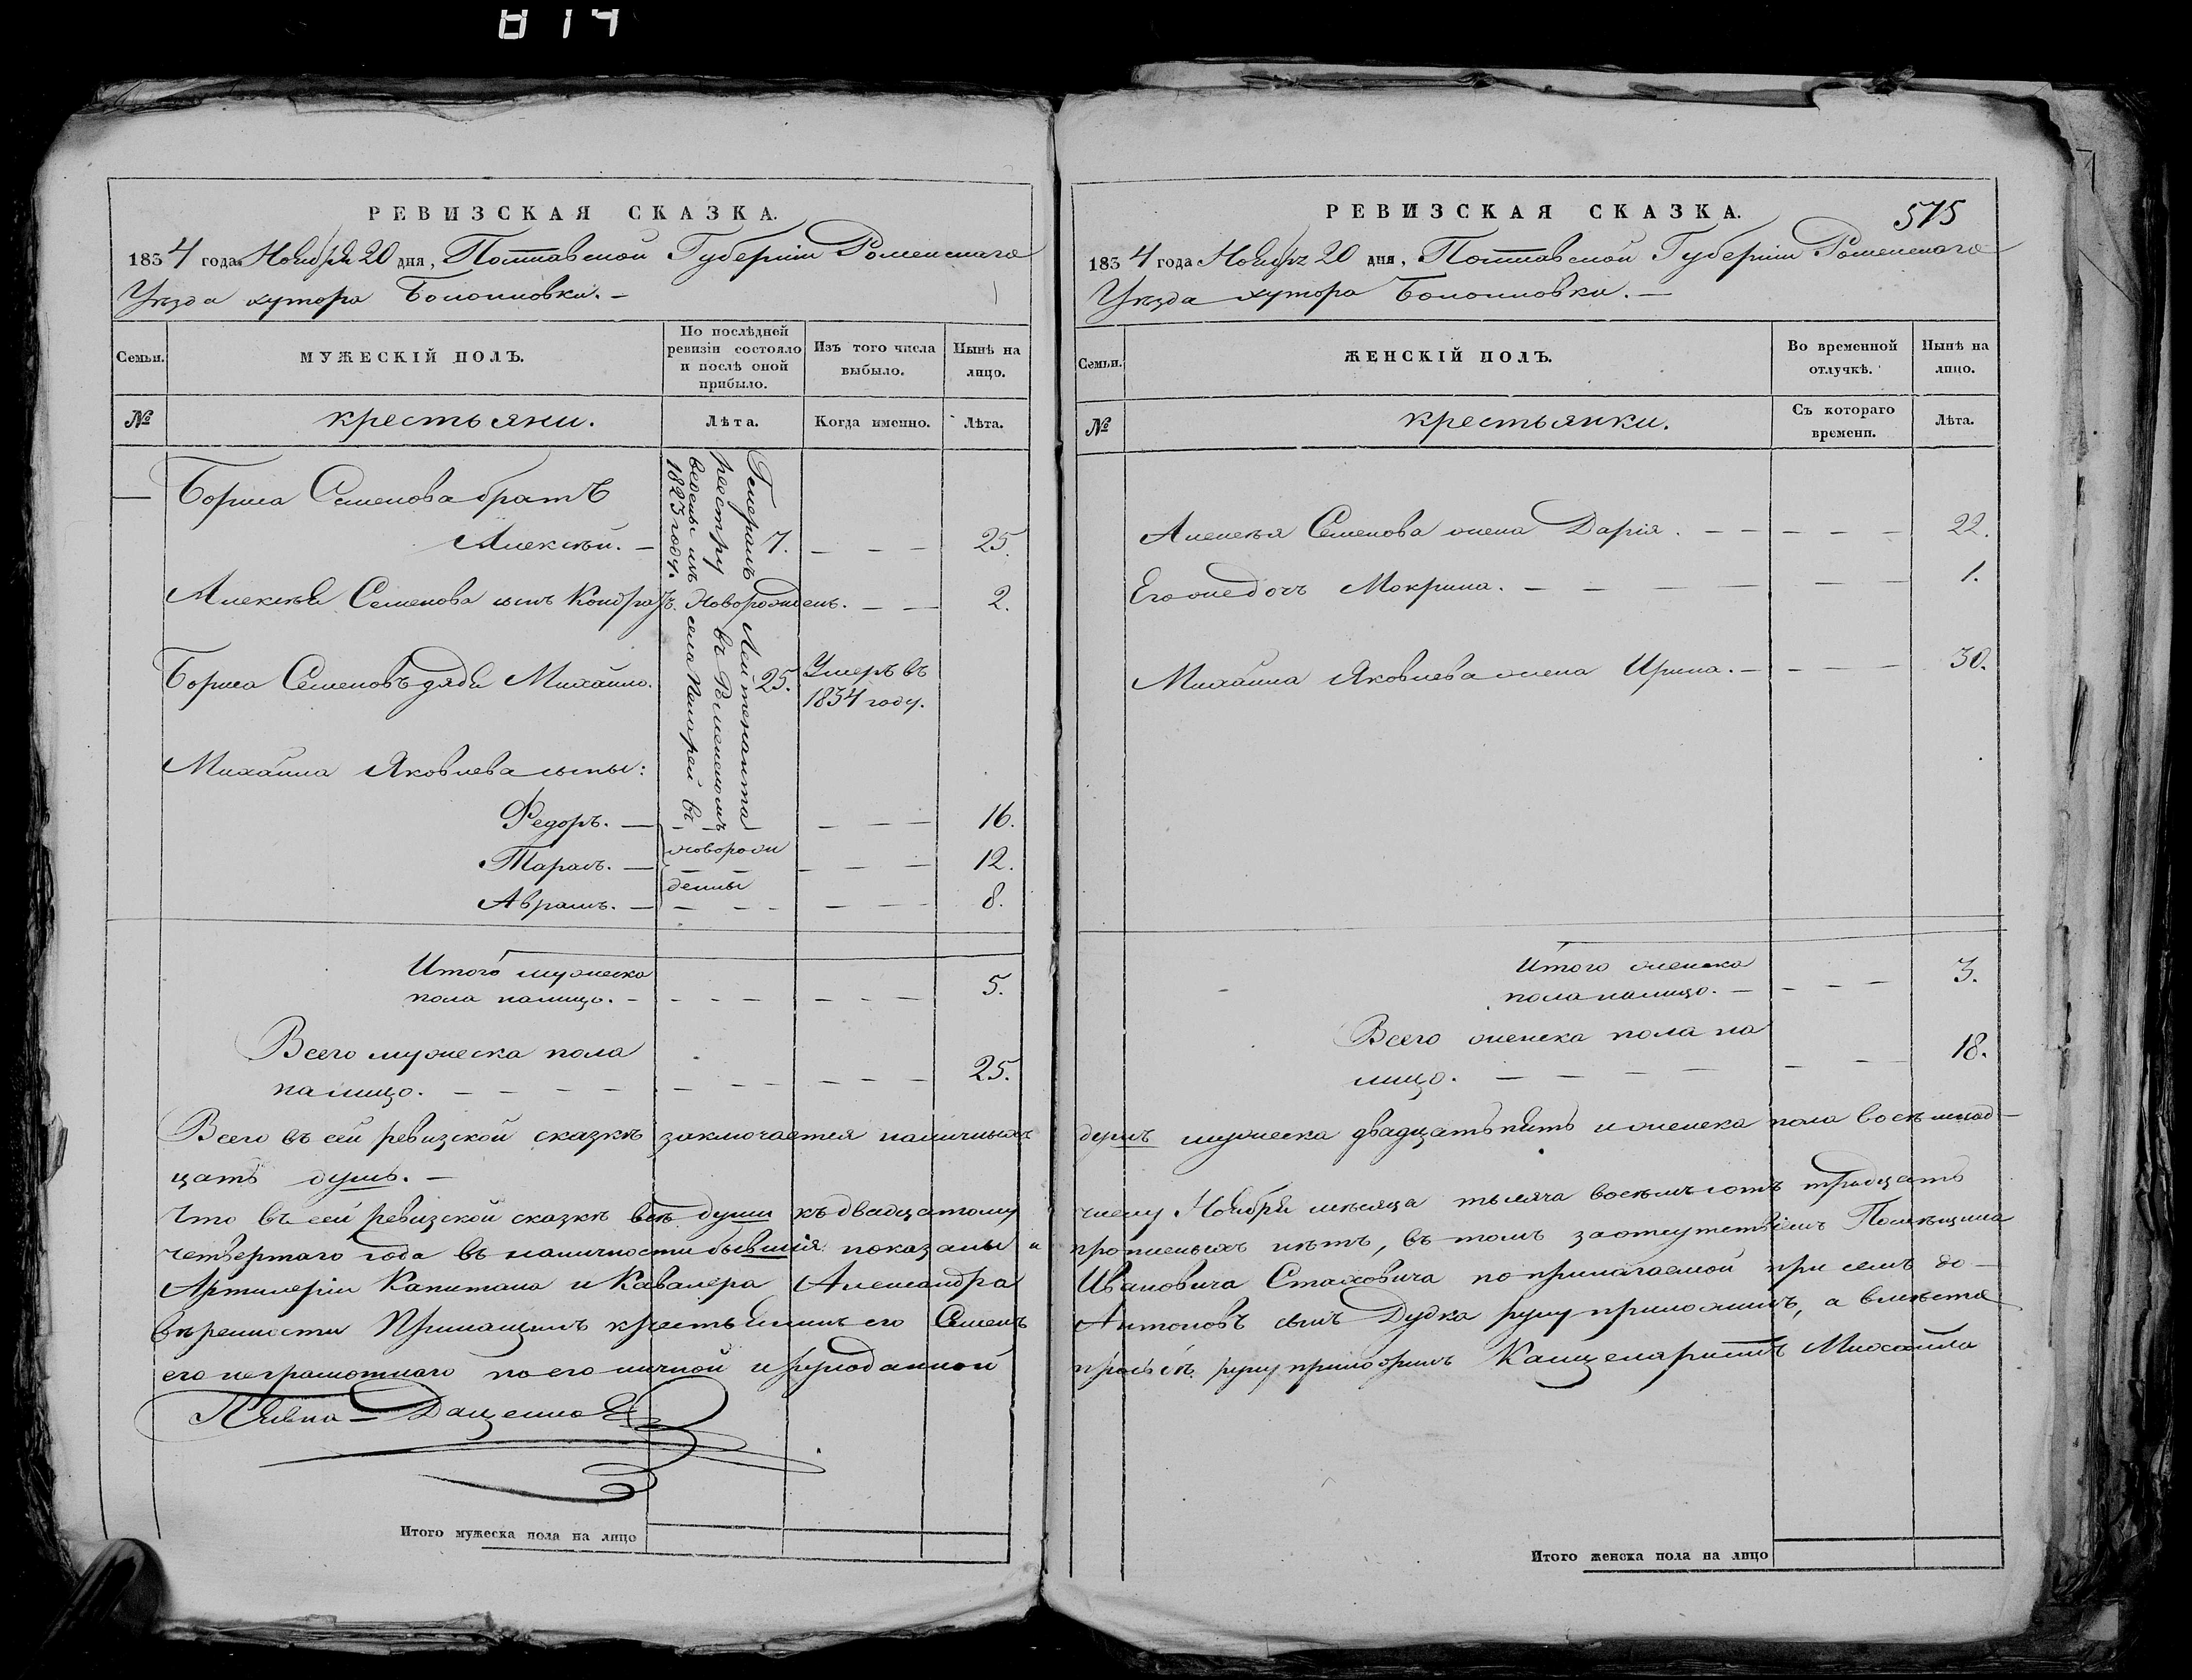 814
РЕВИЗСКАЯ СКАЗКА.
1834 года Ноября 20 дня, Полтавской Губерніи Роменскаго
Уѣзда хутора
Семьи.
МУЖЕСКІЙ ПОЛЪ.
По послѣдней ревизіи состояло и послѣ оной прибыло.
Изъ того числа выбыло.
Нынѣ на лицо.
№
крестьяни.
Лѣта.
Когда именно.
Лѣта.
Бориса Семенова братъ
Алексѣй. — 7. — — — 25.
Алексѣя Семенова сынъ Кондратъ. Новорожденъ. — — 2.
Бориса Семеновъ дядя Михайло. 25. Умеръ въ
1834 году.
Генералъ Лейтенанта
реестру въ Роменскомъ
ведены изъ села въ
1823 году.
Михайла Яковлева сыны:
Федоръ. — — — — 16.
новорож
Тарасъ. — — — — 12.
денны
Аврамъ. — — — — 8.
Итого мужеска
пола налицо. — — — — 5.
Всего мужеска пола
налицо. — — — — 25.
Всего въ сей ревизской сказкѣ заключается наличныхъ
цать душъ. —
Что въ сей ревизской сказкѣ всѣ души къ двадцатому
четвертаго года въ наличности бывшія показаны и
Артилеріи Капитана и Кавалера Александра
вѣренности Приказщикъ крестьянинъ его Семенъ
его неграмотнаго по его личной и рукоданной
Дащенко
Итого мужеска пола на лицо
РЕВИЗСКАЯ СКАЗКА.
575
1834 года Ноября 20 дня, Полтавской Губерніи Роменскаго
Уѣзда хутора
Семьи.
ЖЕНСКІЙ ПОЛЪ.
Во временной отлучкѣ.
Нынѣ на лицо.
№
крестьянки.
Съ котораго времени.
Лѣта.
Алексѣя Семенова жена Дарія. — — — — — 22.
Его же дочь Мокрина. — — — — — 1.
Михайла Яковлева жена Ирина. — — — — 30.
Итого женска
пола налицо. — — — — 3.
Всего женска пола на
лицо. — — — — — — 18.
душъ мужеска двадцать пять и женска пола восѣмнад-
числу Ноября мѣсяца тысяча восѣмъ сотъ тридцать
прописныхъ нѣтъ, въ томъ за отсутствіемъ Помѣщика
Ивановича Стаховича по прилагаемой при семъ до-
Антоновъ сынъ Дудка руку приложилъ, а вмѣсто
прозьбѣ руку приложилъ Канцеляристъ Михайла
Итого женска пола на лицо